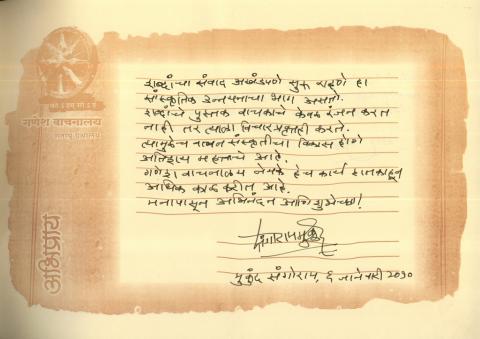 गणेश वाचनालय
अभिप्राय
शब्दांचा संवाद अखंडपणे सुरू राहणे हा
सांस्कृतिक उन्नयनाचा भाग असतो.
शब्दांचे पुस्तक वाचकाचे केवळ रंजन करत
नाही तर त्याला विचारप्रवृत्तही करते.
त्यामुळेच वाचन संस्कृतीचा विकास होणे
अतिशय महत्वाचे आहे.
गणेश वाचनालय नेमके हेच कार्य शतकाहून
अधिक काळ करीत आहे.
मनापासून अभिनंदन आणि शुभेच्छा!
मुकुंद संगोराम, ६ जानेवारी २०१०